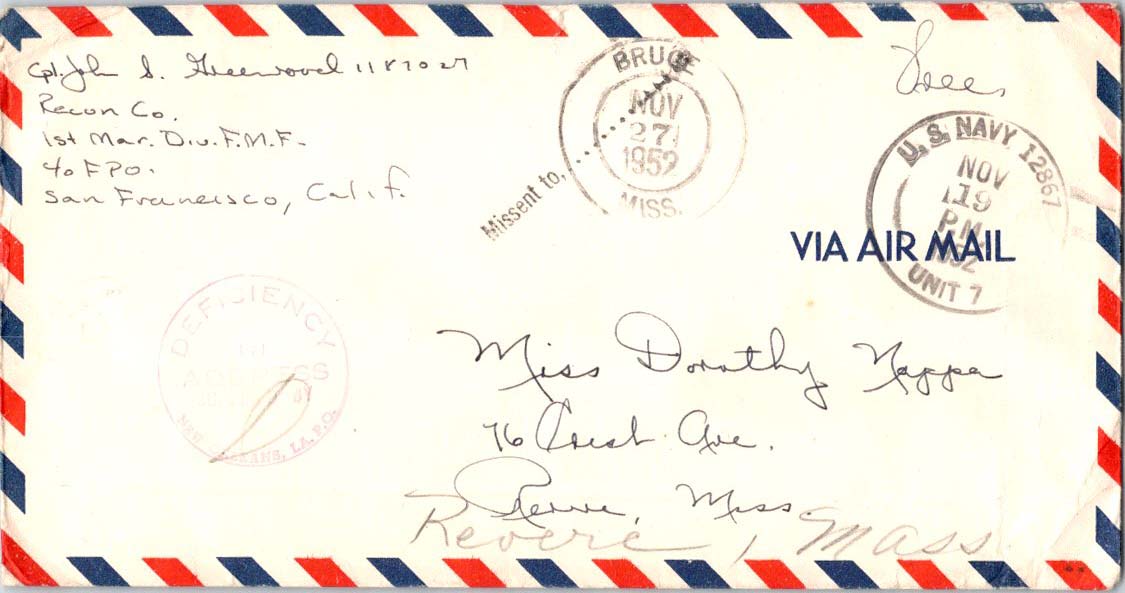 Cpl. John S. Greenwood 1187027
Recon Co.
1st Mar. Div. F.M.F.
c/o F P O.
San Francisco, Calif.
BRUCE
NOV
27
1952
MISS.
Missent to,
Free,
U.S. NAVY 12867
NOV
19
P.M.
1952
UNIT 7
VIA AIR MAIL
DEFICIENCY
IN
ADDRESS
BY
NEW ORLEANS, LA. P.O.
Miss Dorothy Nappa
76 Crest Ave.
Revere, Miss.
Revere, Mass